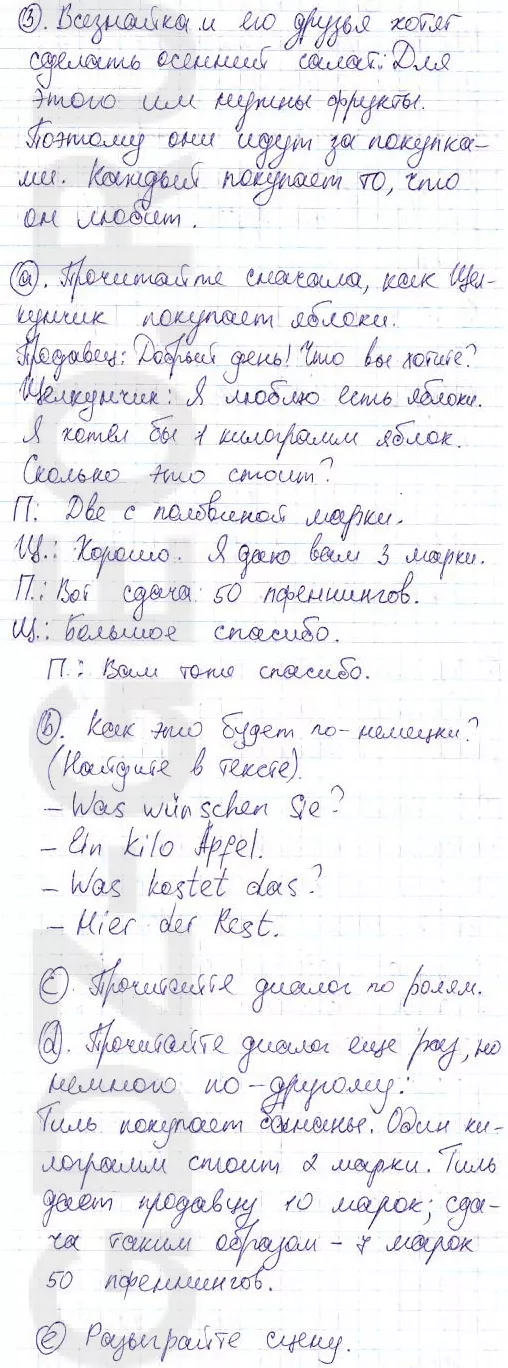 ③. Всезнайка и его друзья хотят
сделать осенний салат. Для
этого им нужны фрукты.
Поэтому они идут за покупка-
ми. Каждый покупает то, что
он любит.
ⓐ. Прочитайте сначала, как Щел-
кунчик покупает яблоки.
Продавец: Добрый день! Что вы хотите?
Щелкунчик: Я люблю есть яблоки.
Я хотел бы 1 килограмм яблок.
Сколько это стоит?
П: Две с половиной марки.
Щ.: Хорошо. Я даю вам 3 марки.
П.: Вот сдача: 50 пфеннингов.
Щ.: Большое спасибо.
П.: Вам тоже спасибо.
ⓑ. Как это будет по-немецки?
(Найдите в тексте).
- Was wünschen Sie?
- Ein kilo Äpfel.
- Was kostet das?
- Hier der Rest.
ⓒ. Прочитайте диалог по ролям.
ⓓ. Прочитайте диалог еще раз, но
немного по-другому:
Тиль покупает бананы. Один ки-
лограмм стоит 2 марки. Тиль
дает продавцу 10 марок; сда-
ча таким образом - 7 марок
50 пфеннингов.
ⓔ Разыграйте сцену.
GDZ-GEO.RU